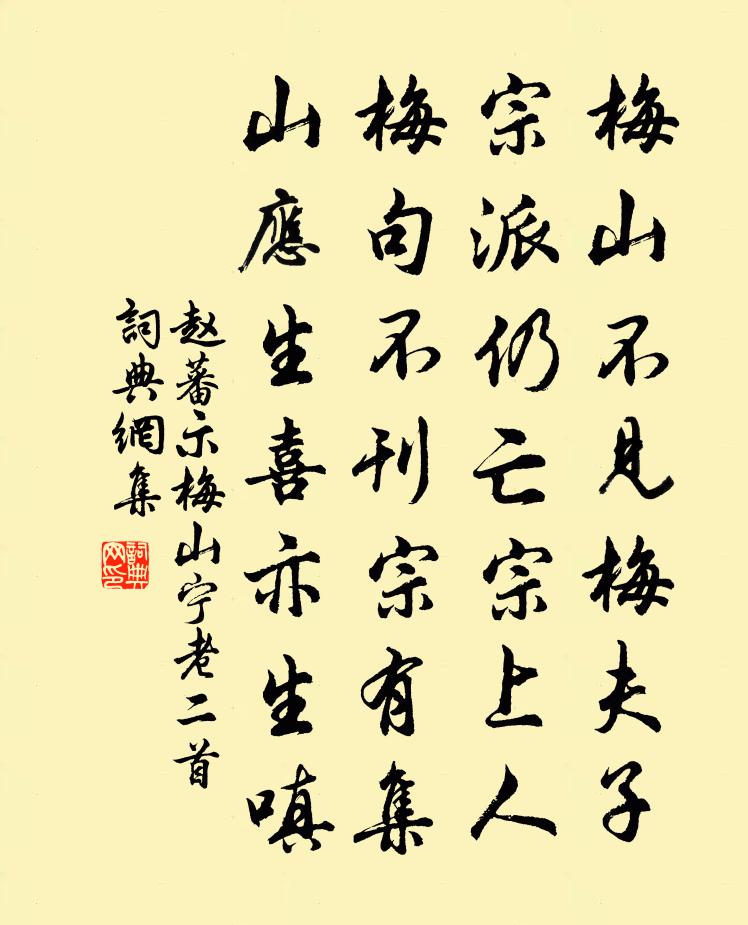 梅山不見梅夫子
宗派仍亡宗上人
梅句不刊宗有集
山應生喜亦生嗔
赵蕃示梅山宁老二首
詞典網集
詞典网印